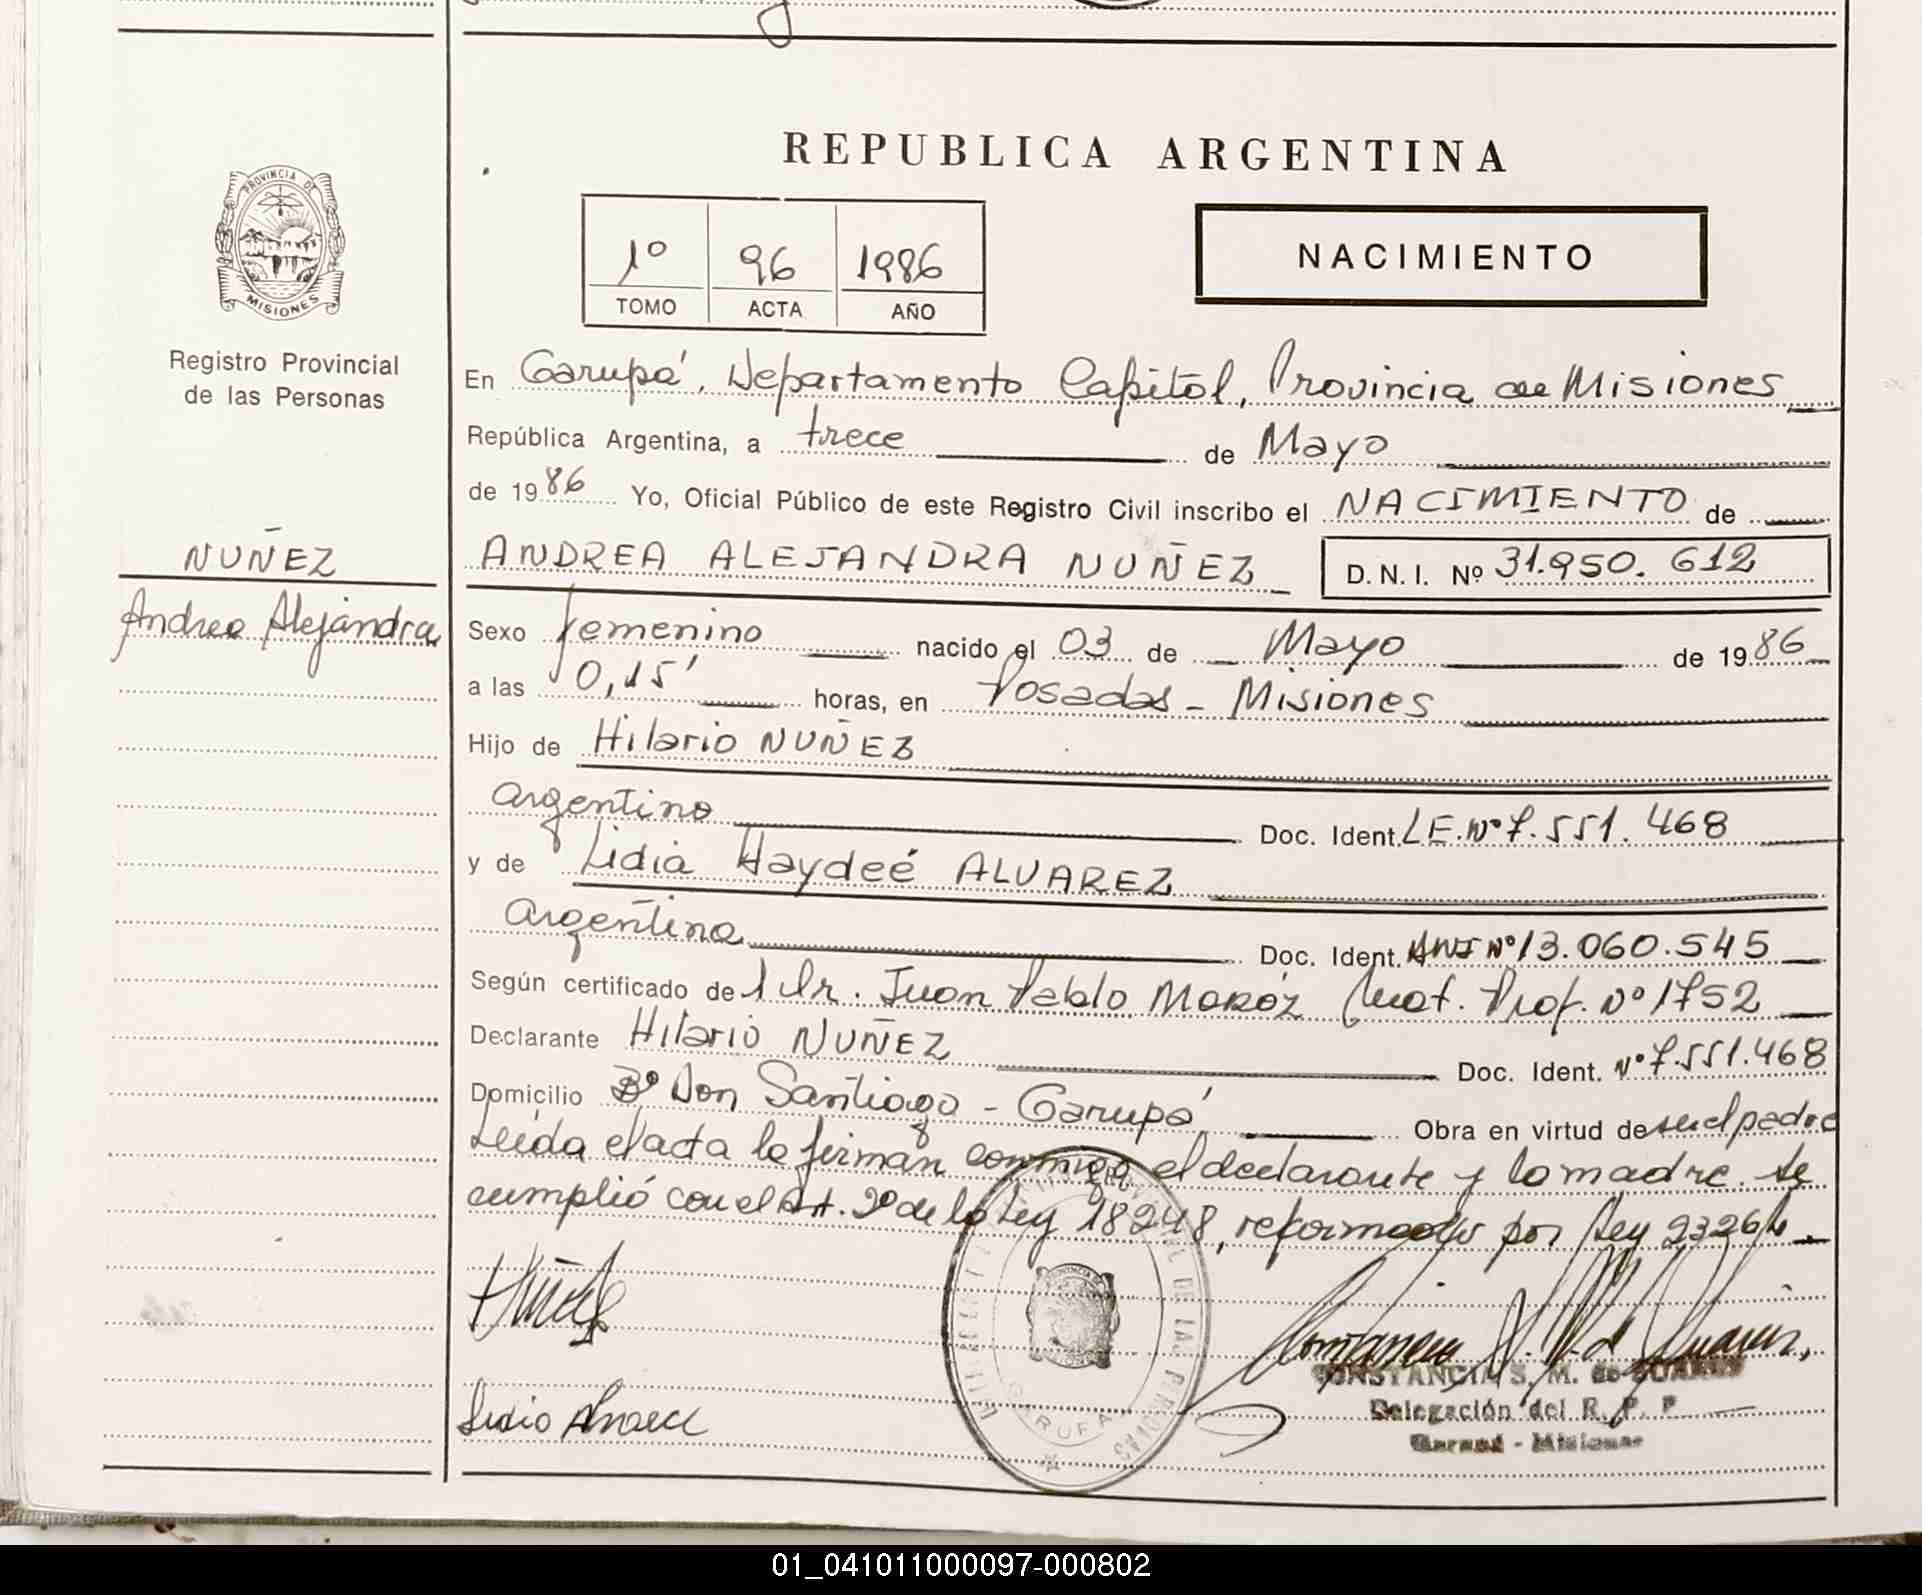 REPUBLICA ARGENTINA
PROVINCIA DE
MISIONES
Registro Provincial
de las Personas
1º 96 1986
TOMO ACTA AÑO
NACIMIENTO
En Garupá, Departamento Capital, Provincia de Misiones
República Argentina, a trece de Mayo
de 1986 Yo, Oficial Público de este Registro Civil inscribo el NACIMIENTO de
NUÑEZ
Andrea Alejandra
ANDREA ALEJANDRA NUÑEZ D.N.I. Nº 31.950.612
Sexo femenino nacido el 03 de Mayo de 1986
a las 0,15' horas, en Posadas - Misiones
Hijo de Hilario NUÑEZ
argentino Doc. Ident. L.E. Nº 7.551.468
y de Lidia Haydeé ALVAREZ
argentina Doc. Ident. Nº 13.060.545
Según certificado de Dr. Juan Pablo MOROZ Mat. Prof. Nº 1752
Declarante Hilario NUÑEZ Doc. Ident. Nº 7.551.468
Domicilio Bº Don Santiago - Garupá Obra en virtud de ser el padre
Leída el acta la firman conmigo el declarante y la madre. Se
cumplió con el Art. 2º de la Ley 18248, reformado por Ley 23264
CONSTANCIA S. M. de SUARES
Delegación del R. P. P.
Garupá - Misiones
GARUPA
01_041011000097-000802